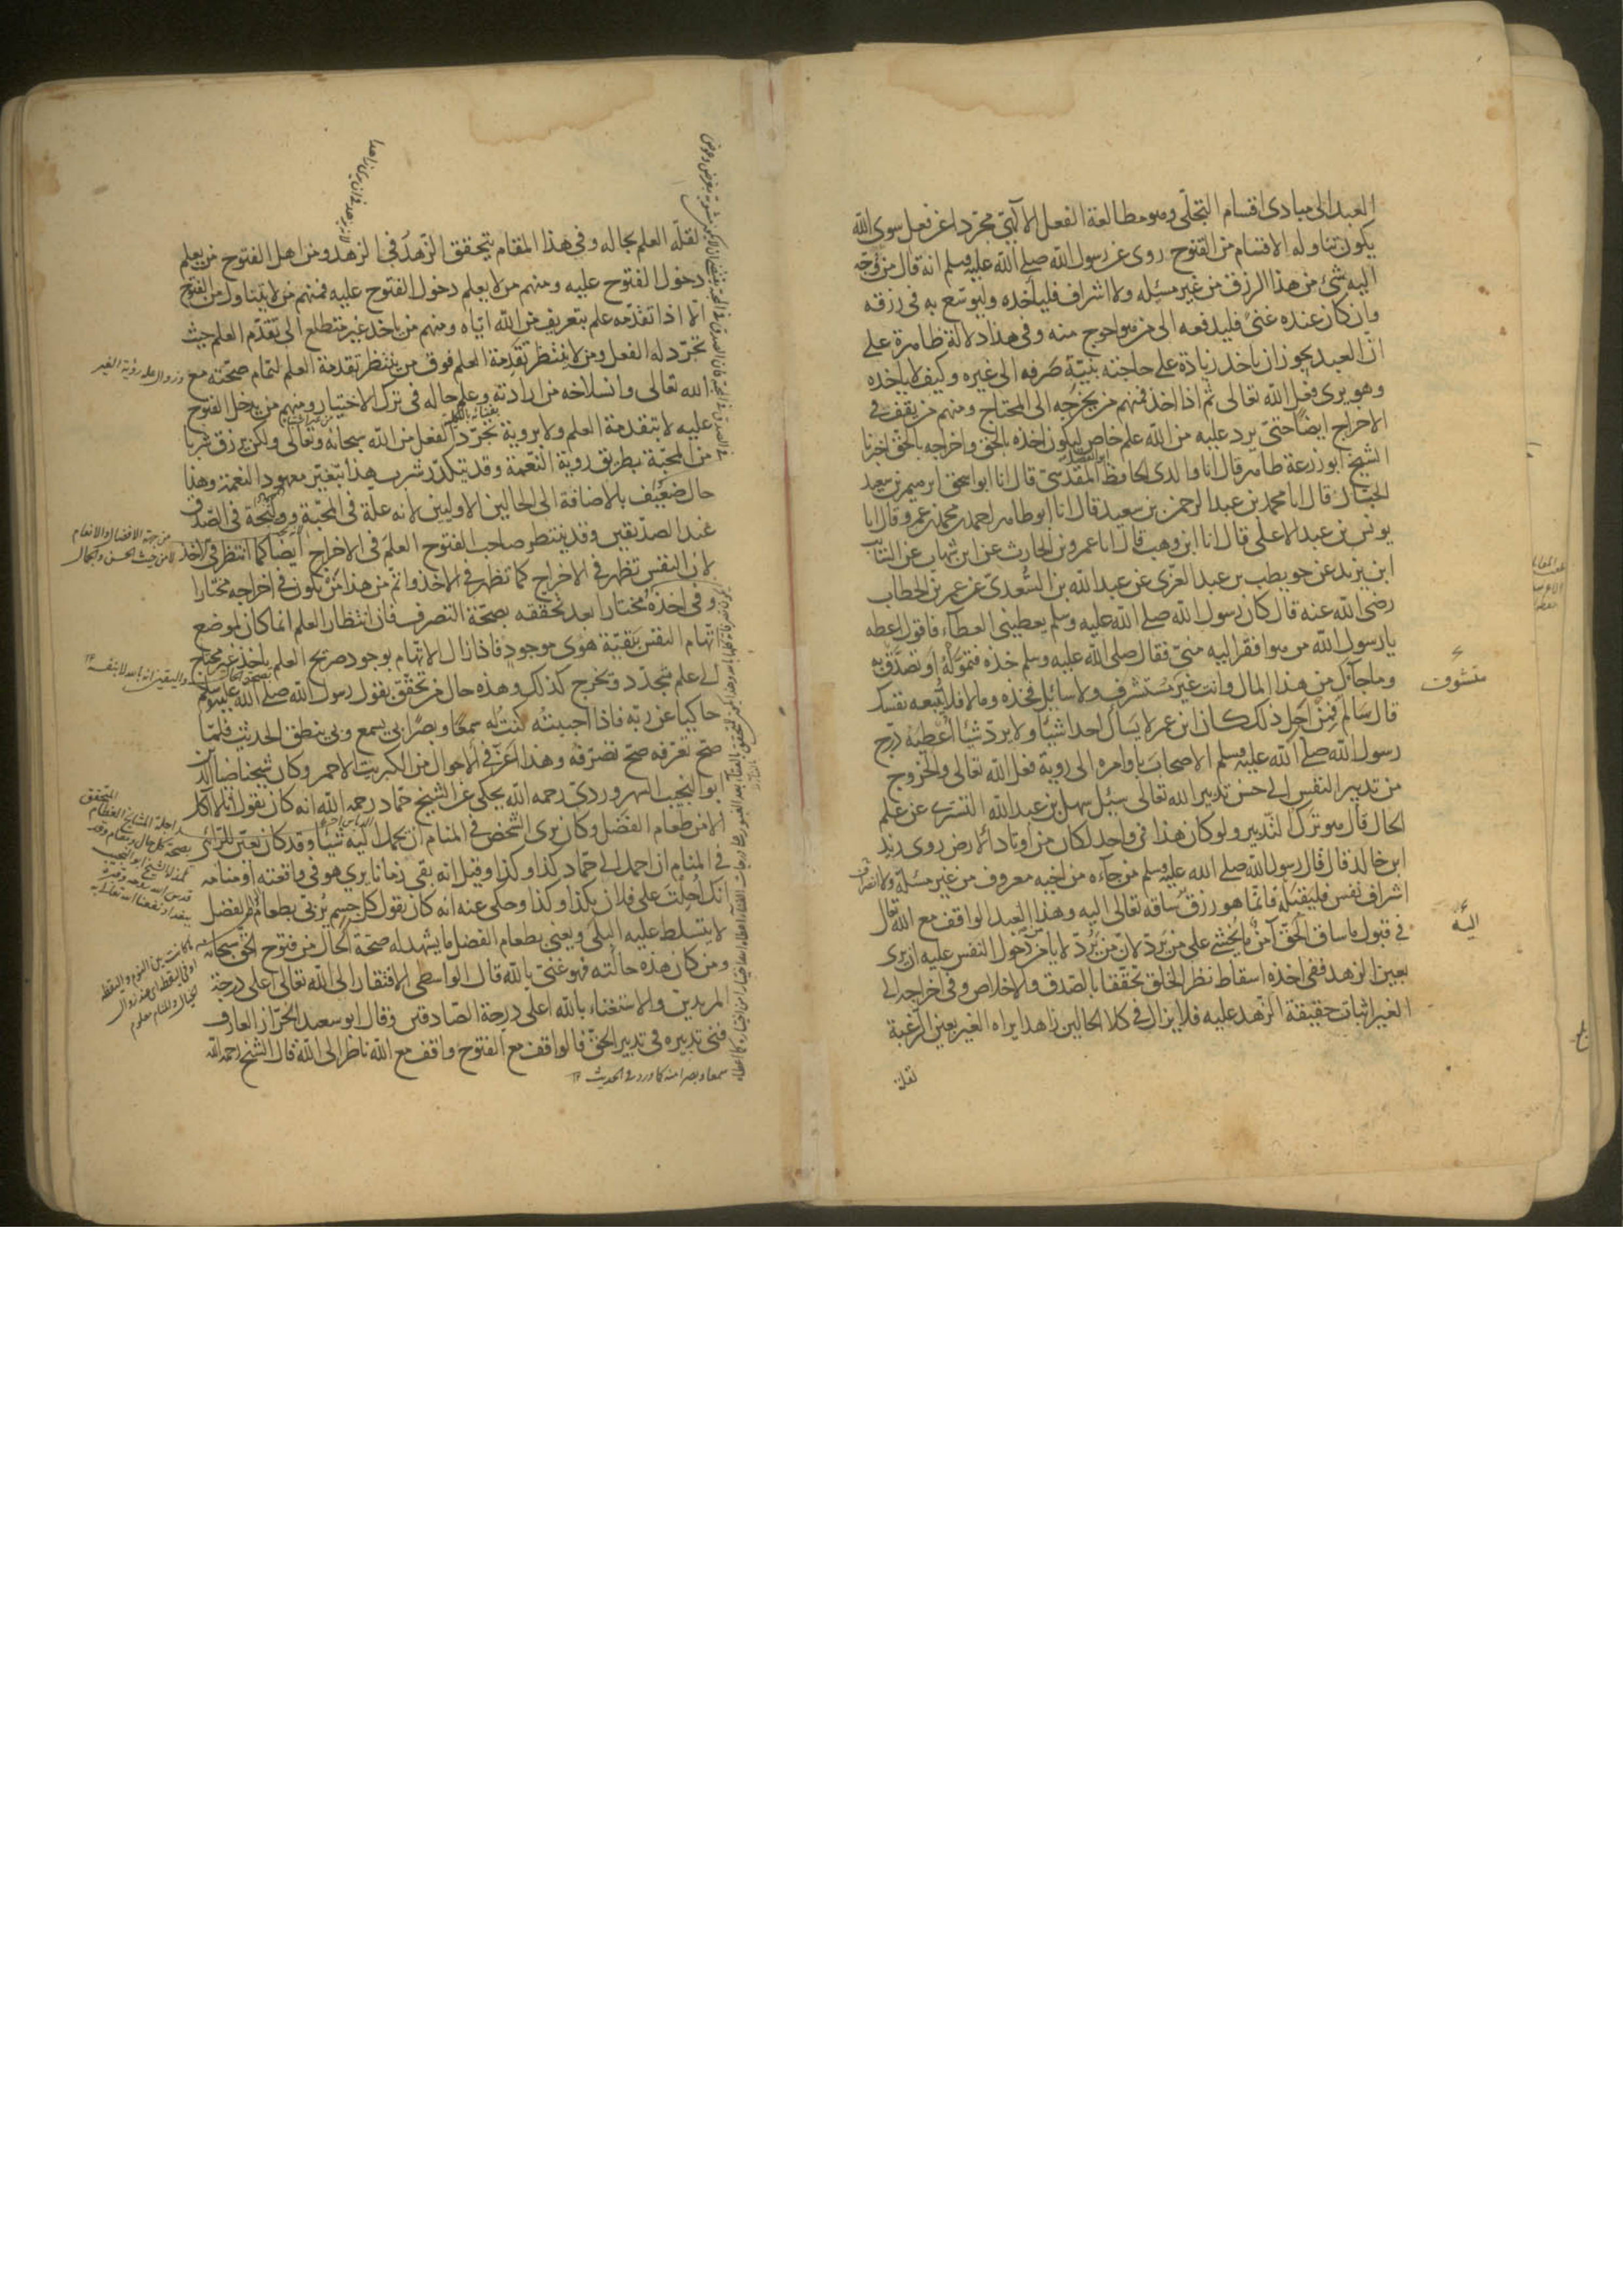 العبد الى مبادى اقسام التجلّى وهو مطالعة الفعل الالهى مجرّدا عن فعل سوى الله
يكون تناوله الاقسام من الفتوح روى عن رسول الله صلى الله عليه وسلم انه قال من وجّه
اليه شئ من هذا الرزق من غير مسئلة ولا اشراف فليأخذه وليوسّع به فى رزقه
وان كان عنده غنىً فليدفعه الى من هو احوج منه وفى هذا دلالة ظاهرة على
انّ العبد يجوز ان ياخذ زيادة على حاجته بنيّة صرفه الى غيره وكيف لا ياخذه
وهو يرى فعل الله تعالى ثم اذا اخذ فمنهم من يخرجه الى المحتاج ومنهم من يقف فى
الاخراج ايضًا حتى يرد عليه من الله علم خاص ليكون اخذه بالحق واخراجه بالحق اخبرنا
الشيخ ابو زرعة طاهر قال انا والدى الحافظ المقدسىّ قال انا ابو اسحق ابرهيم بن سعيد
الحبّال قال انا محمد بن عبد الرحمن بن سعيد قال انا ابو طاهر احمد بن محمد بن عمرو قال انا
يونس بن عبد الاعلى قال انا ابن وهب قال انا عمرو بن الحارث عن ابن شهاب عن السّائب
ابن يزيد عن حويطب بن عبد العزّى عن عبد الله بن السّعدىّ عن عمر بن الخطاب
رضى الله عنه قال كان رسول الله صلى الله عليه وسلم يعطينى العطاء فاقول اعطه
يا رسول الله من هو افقر اليه منّى فقال صلى الله عليه وسلم خذه فتموّله او تصدّق به
وما جآك من هذا المال وانت غير مستشرف ولا سايل فخذه وما لا فلا تتبعه نفسك
متشوف
قال سالم فمن اجل ذلك كان ابن عمر لا يسأل احدا شيئا ولا يردّ شيئا اعطيه درّج
رسول الله صلى الله عليه وسلم الاصحاب باوامره الى روية فعل الله تعالى والخروج
من تدبير النفس الى حسن تدبير الله تعالى سئل سهل بن عبد الله التسترى عن علم
الحال قال هو ترك التدبير ولو كان هذا فى واحد لكان من اوتاد الارض روى زيد
ابن خالد قال قال رسول الله صلى الله عليه وسلم من جآءه من اخيه معروف من غير مسئلة ولا
اشراف نفس فليقبله فانّما هو رزق ساقه تعالى اليه وهذا العبد الواقف مع الله تعالى
فى قبول ما ساق الحقّ آمنٌ ما يخشى على من يردّ لانّ من يردّ لا يامن دخول النفس عليه ان يرى
بعين الزهد ففى اخذه اسقاط نظر الخلق تحقّقا بالصّدق والاخلاص وفى اخراجه الى
الغير اثبات حقيقة الزّهد عليه فلا يزال فى كلا الحالين زاهدا يراه الغير بعين الرغبة
لقلة
لقلّة العلم بحاله وفى هذا المقام يتحقق الزّهد فى الزهد ومن اهل الفتوح من يعلم
دخول الفتوح عليه ومنهم من لا يعلم دخول الفتوح عليه فمنهم من لا يتناول من الفتوح
الّا اذا تقدّمه علم بتعريف من الله ايّاه ومنهم من ياخذ غير متطلع الى تقدّم العلم حيث
تجرّد له الفعل ومن لا ينتظر تقدمة العلم فوق من ينتظر تقدمة العلم لتمام صحّته مع
وزوال علة رؤية الغير
الله تعالى وانسلاخه من ارادته وعلم حاله فى ترك الاختيار ومنهم من يدخل الفتوح
عليه لا بتقدمة العلم ولا بروية تجرّد الفعل من الله سبحانه وتعالى ولكن يرزق شربا
من المحبّة بطريق روية النّعمة وقد يتكدّر شرب هذا بتغيّر معهود النعمة وهذا
حال ضعيف بالاضافة الى الحالين الاوليين لانه علة فى المحبّة ووليجة فى الصّدق
من جهة الافضال والانعام
لا من حيث الحسن والجمال
عند الصدّيقين وقد ينتظر صاحب الفتوح العلم فى الاخراج ايضًا كما انتظر فى الاخذ
لان النفس تظهر فى الاخراج كما تظهر فى الاخذ واتم من هذا من يكون فى اخراجه مختارا
وفى اخذه مختارا بعد تحققه بصحّة التصرف فان انتظار العلم انما كان لموضع
اتهام النفس بقيّة هوى موجود فاذا زال الاتهام بوجود صريح العلم ياخذ غير محتاج
الى علم متجدّد ويخرج كذلك وهذه حال من تحقّق بقول رسول الله صلى الله عليه وسلم
حاكيا عن ربّه فاذا احببته كنت له سمعًا وبصرًا بى يسمع وبى ينطق الحديث فلمّا
صحّ تعرّفه صحّ تصرّفه وهذا اعزّ فى الاحوال من الكبريت الاحمر وكان شيخنا ضيا الدين
ابو النجيب السهروردىّ رحمه الله يحكى عن الشيخ حمّاد رحمه الله انه كان يقول انا لا آكل
الا من طعام الفضل وكان يرى الشخص فى المنام ان يحمل اليه شيئا وقد كان يعيّن للرّائى
فى المنام ان احمل الى حمّاد كذا وكذا وقيل انه بقى زمانا يرى هو فى واقعته او منامه
انك احلت على فلان بكذا وكذا وحكى عنه انه كان يقول كل جسم تربّى بطعام الفضل
لا يتسلط عليه البلى ويعنى بطعام الفضل ما يشهد له صحّة الحال من فتوح الحق سبحانه
ومن كان هذه حالته فهو غنىّ بالله قال الواسطى الافتقار الى الله تعالى اعلى درجة
المريدين والاستغناء بالله اعلى درجة الصّادقين وقال ابو سعيد الخرّاز العارف
فنى تدبيره فى تدبير الحقّ فالواقف مع الفتوح واقف مع الله ناظر الى الله قال الشيخ رحمه الله
سمعا وبصرا منه كما ورد فى الحديث